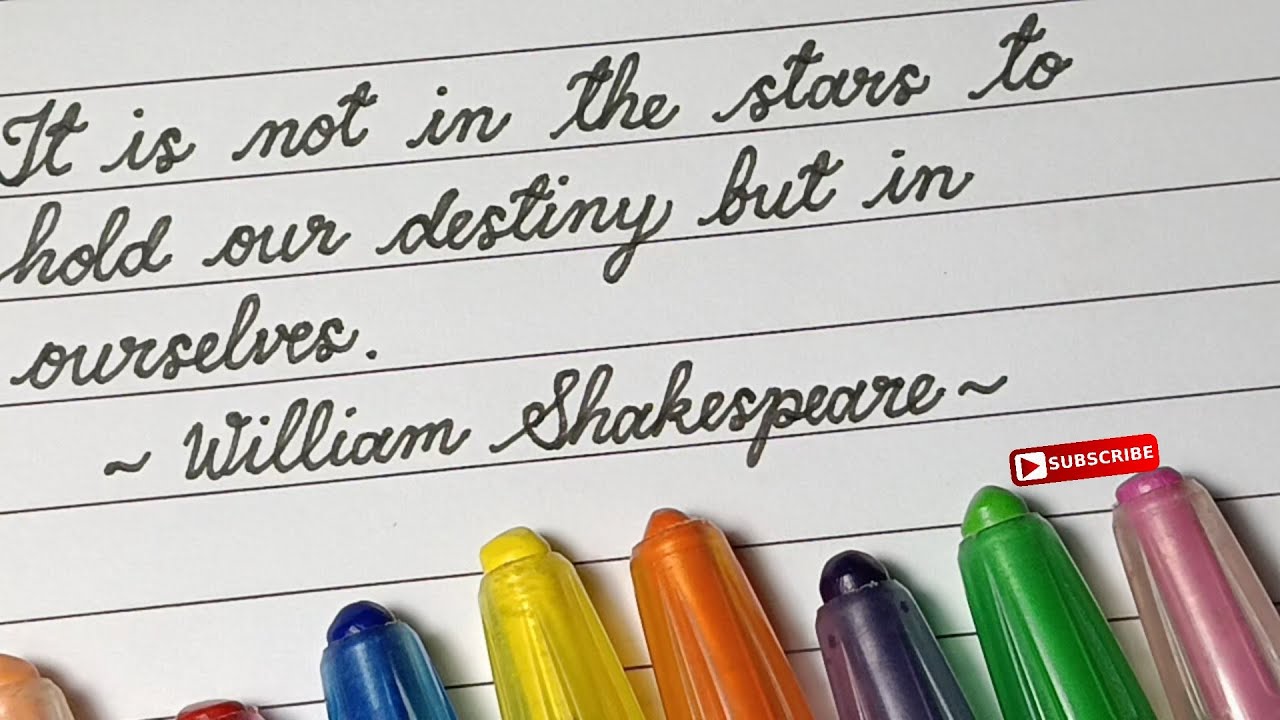 It is not in the stars to
hold our destiny but in
ourselves.
~ William Shakespeare ~
SUBSCRIBE